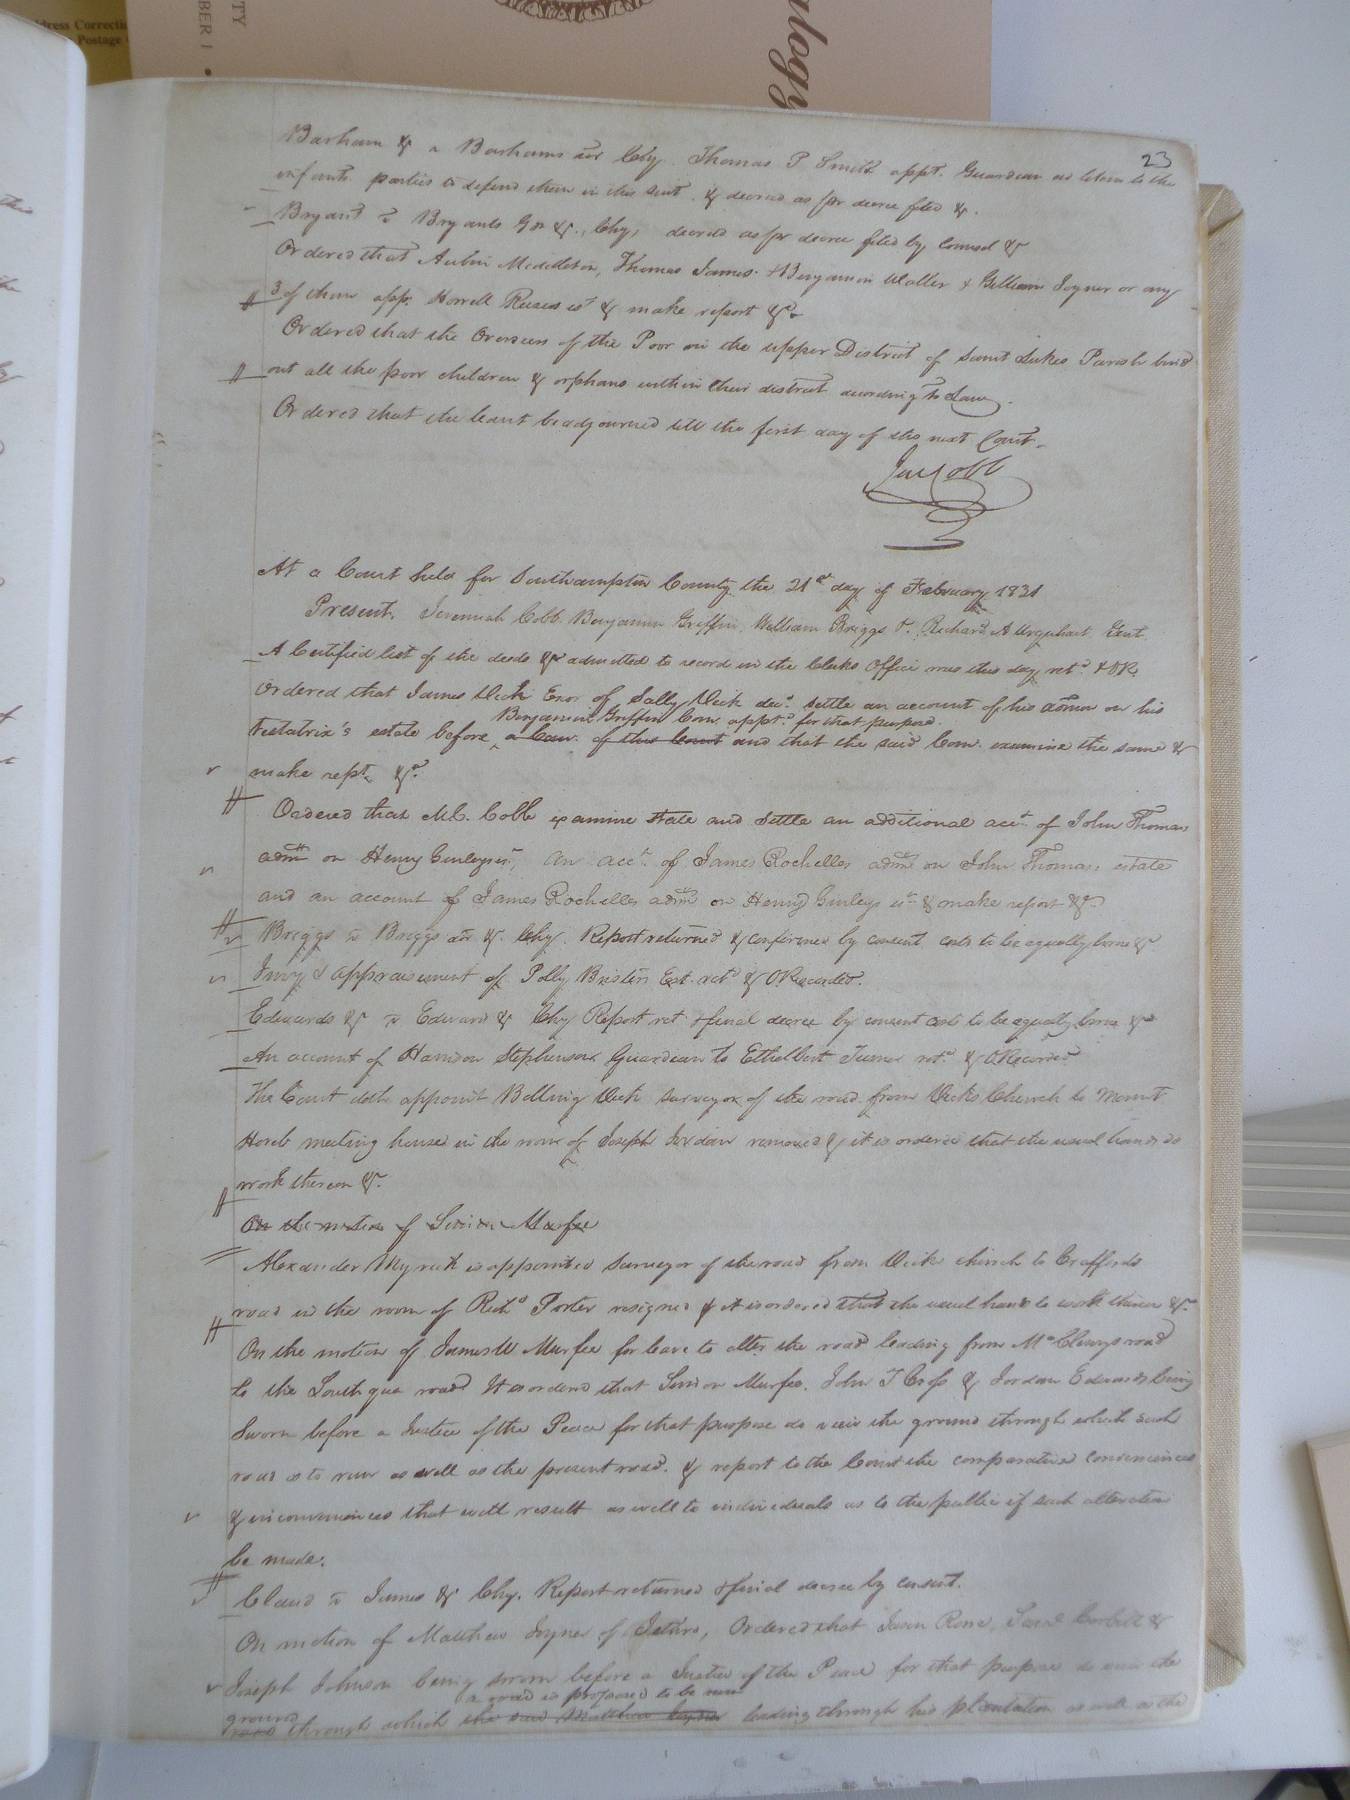 dress Correcti
Postage
TY
BER 1 •
alogy
23
Barham & v Barhams Chy. Thomas P Smith appt. Guardian ad litem to the
infants parties to defend them in this suit & decred as pr decree filed &.
Bryant v Bryants &., Chy, decred as pr decree filed by Counsel &
Ordered that Middleton, Thomas James & Benjamin Waller & Joyner or any
3 of them app. & make report &c
Ordered that the Overseers of the Poor in the upper District of Saint Lukes Parish bind
out all the poor children & orphans within their district according to Law.
Ordered that the Court be adjourned till the first day of the next Court.
Cobb
At a Court held for Southampton County the 21st day of February 1831
Present. Jeremiah Cobb Benjamin Griffin William Briggs & Richard A Urquhart Gent.
A Certified list of the deeds &c admitted to record in the Clerks Office was this day retd & OR.
Ordered that James Vick Exor of Sally Vick decd. settle an account of his admon on his
Benjamin Griffin Com. apptd for that purpose.
testatrix's estate before a Com. of this Court and that the said Com. examine the same &
make rept. &c
Ordered that M.C. Cobb examine state and settle an additional acct. of John Thomas
adm on Henry Gurleys, an acct. of James Rochelles adm on John Thomas, estate
and an account of James Rochelles adm on Henry Gurleys & make report &c
Briggs v Briggs &. Chy. Report returned & confirmed by consent costs to be equally borne &c
Invy & appraisement of Polly Est. retd & ORecorded.
Edwards & v Edward & Chy Report ret & final decree by consent costs to be equally borne &c
An account of Stephenson Guardian to Ethelbert Turner retd & ORecorded
The Court doth appoint Vick surveyor of the road from Vicks Church to Mount
Horeb meeting house in the room of Joseph removed & it is ordered that the usual hands do
work thereon &c.
On the motion of Simon Murfee
Alexander Myrick is appointed surveyor of the road from Vick church to Craffords
road in the room of Richd Porter resigned & it is ordered that the usual hands to work thereon &c
On the motion of James W Murfee for leave to alter the road leading from road
to the Southquay road It is ordered that Simon Murfee, John T Cross & Jordan Edwards being
Sworn before a Justice of the Peace for that purpose do view the ground through which such
road is to run as well as the present road. & report to the Court the comparative conveniences
& inconveniences that will result as well to individuals as to the public if such alteration
be made.
Claud v James & Chy. Report returned & final decree by consent.
On motion of Matthew Joyner of Jethro, Ordered that Rose, Corbitt &
Joseph Johnson being sworn before a Justice of the Peace for that purpose do view the
ground a road is proposed to be run
road through which the said Matthew leading through his plantation as well as the